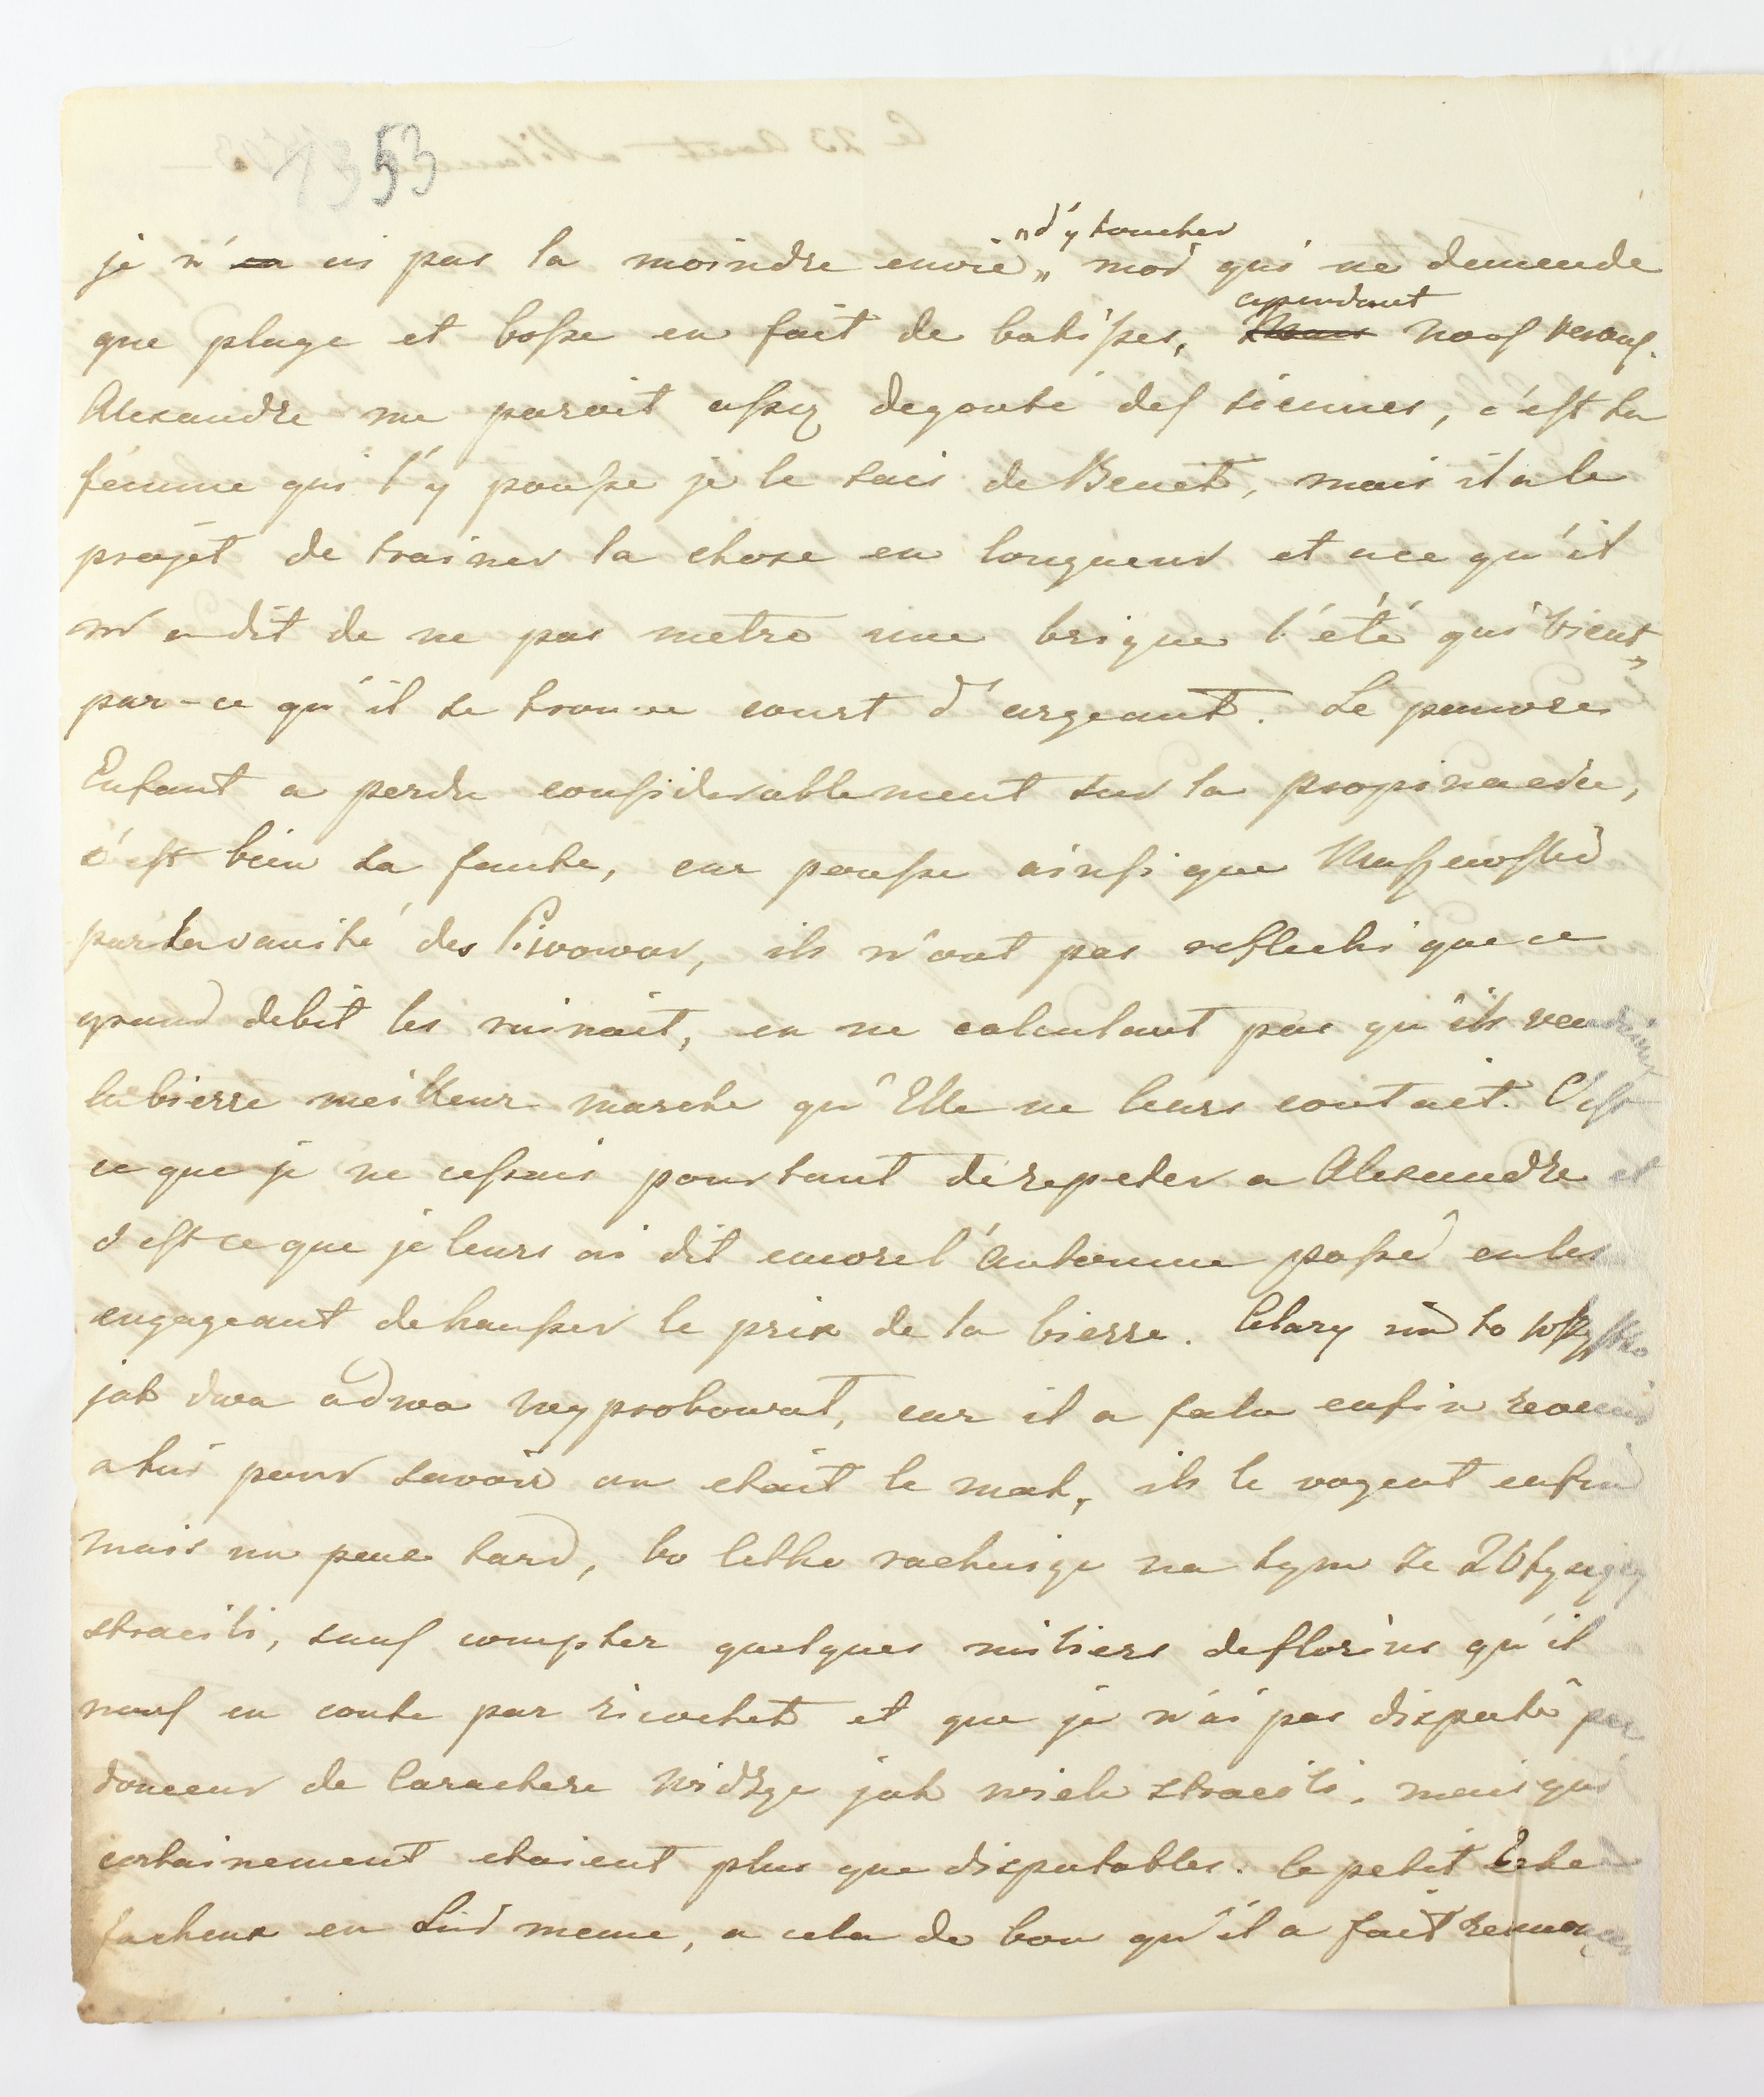 1353
je n'en ai pas la moindre envie „d'y toucher„ moi qui ne demende
que playe et bosse en fait de batisses, cependant nous verons.
Alexandre me parait assez degouté des siennes, c'est sa
femme qui l'y pousse je le sais de Benet, mais il a le
projet de trainer la chose en longueur et a ce qu'il
m'a dit de ne pas metre une brique l'été qui vient,
par-ce qu'il se trouve court d'argeant. Le pauvre
Enfant a perdu considerablement sur la propinacdie,
c'est bien sa faute, car pousse ainsi que
par la vanité des Piwowar, ils n'ont pas reflechi que ce
grand debit les ruinait, en ne calculant pas qu'ils vendaient
la bierre meilleur marché qu'Elle ne leurs coutait. C'est
ce que je ne cessais pourtant de repeter a Alexandre et
c'est ce que je leurs ai dit encore l'automne passé en les
engageant de hausser le prix de la bierre. Clary im to wszystko
jak dwa a dwa wyprobował, car il a falu enfin revenir
a lui pour savoir ou etait le mal, ils le voyent enfin
mais un peux tard, bo lekko rachując na tym ze 20 tysięcy
stracili, sauf compter quelques miliers de florins qu'il
nous en coute par ricochet et que je n'ai pas disputé par
douceur de caractere widząc jak wiele stracili, mais qui
certainement etaient plus que disputables. Ce petit Echec
facheux en Lui meme, a cela de bon qu'il a fait renoncer